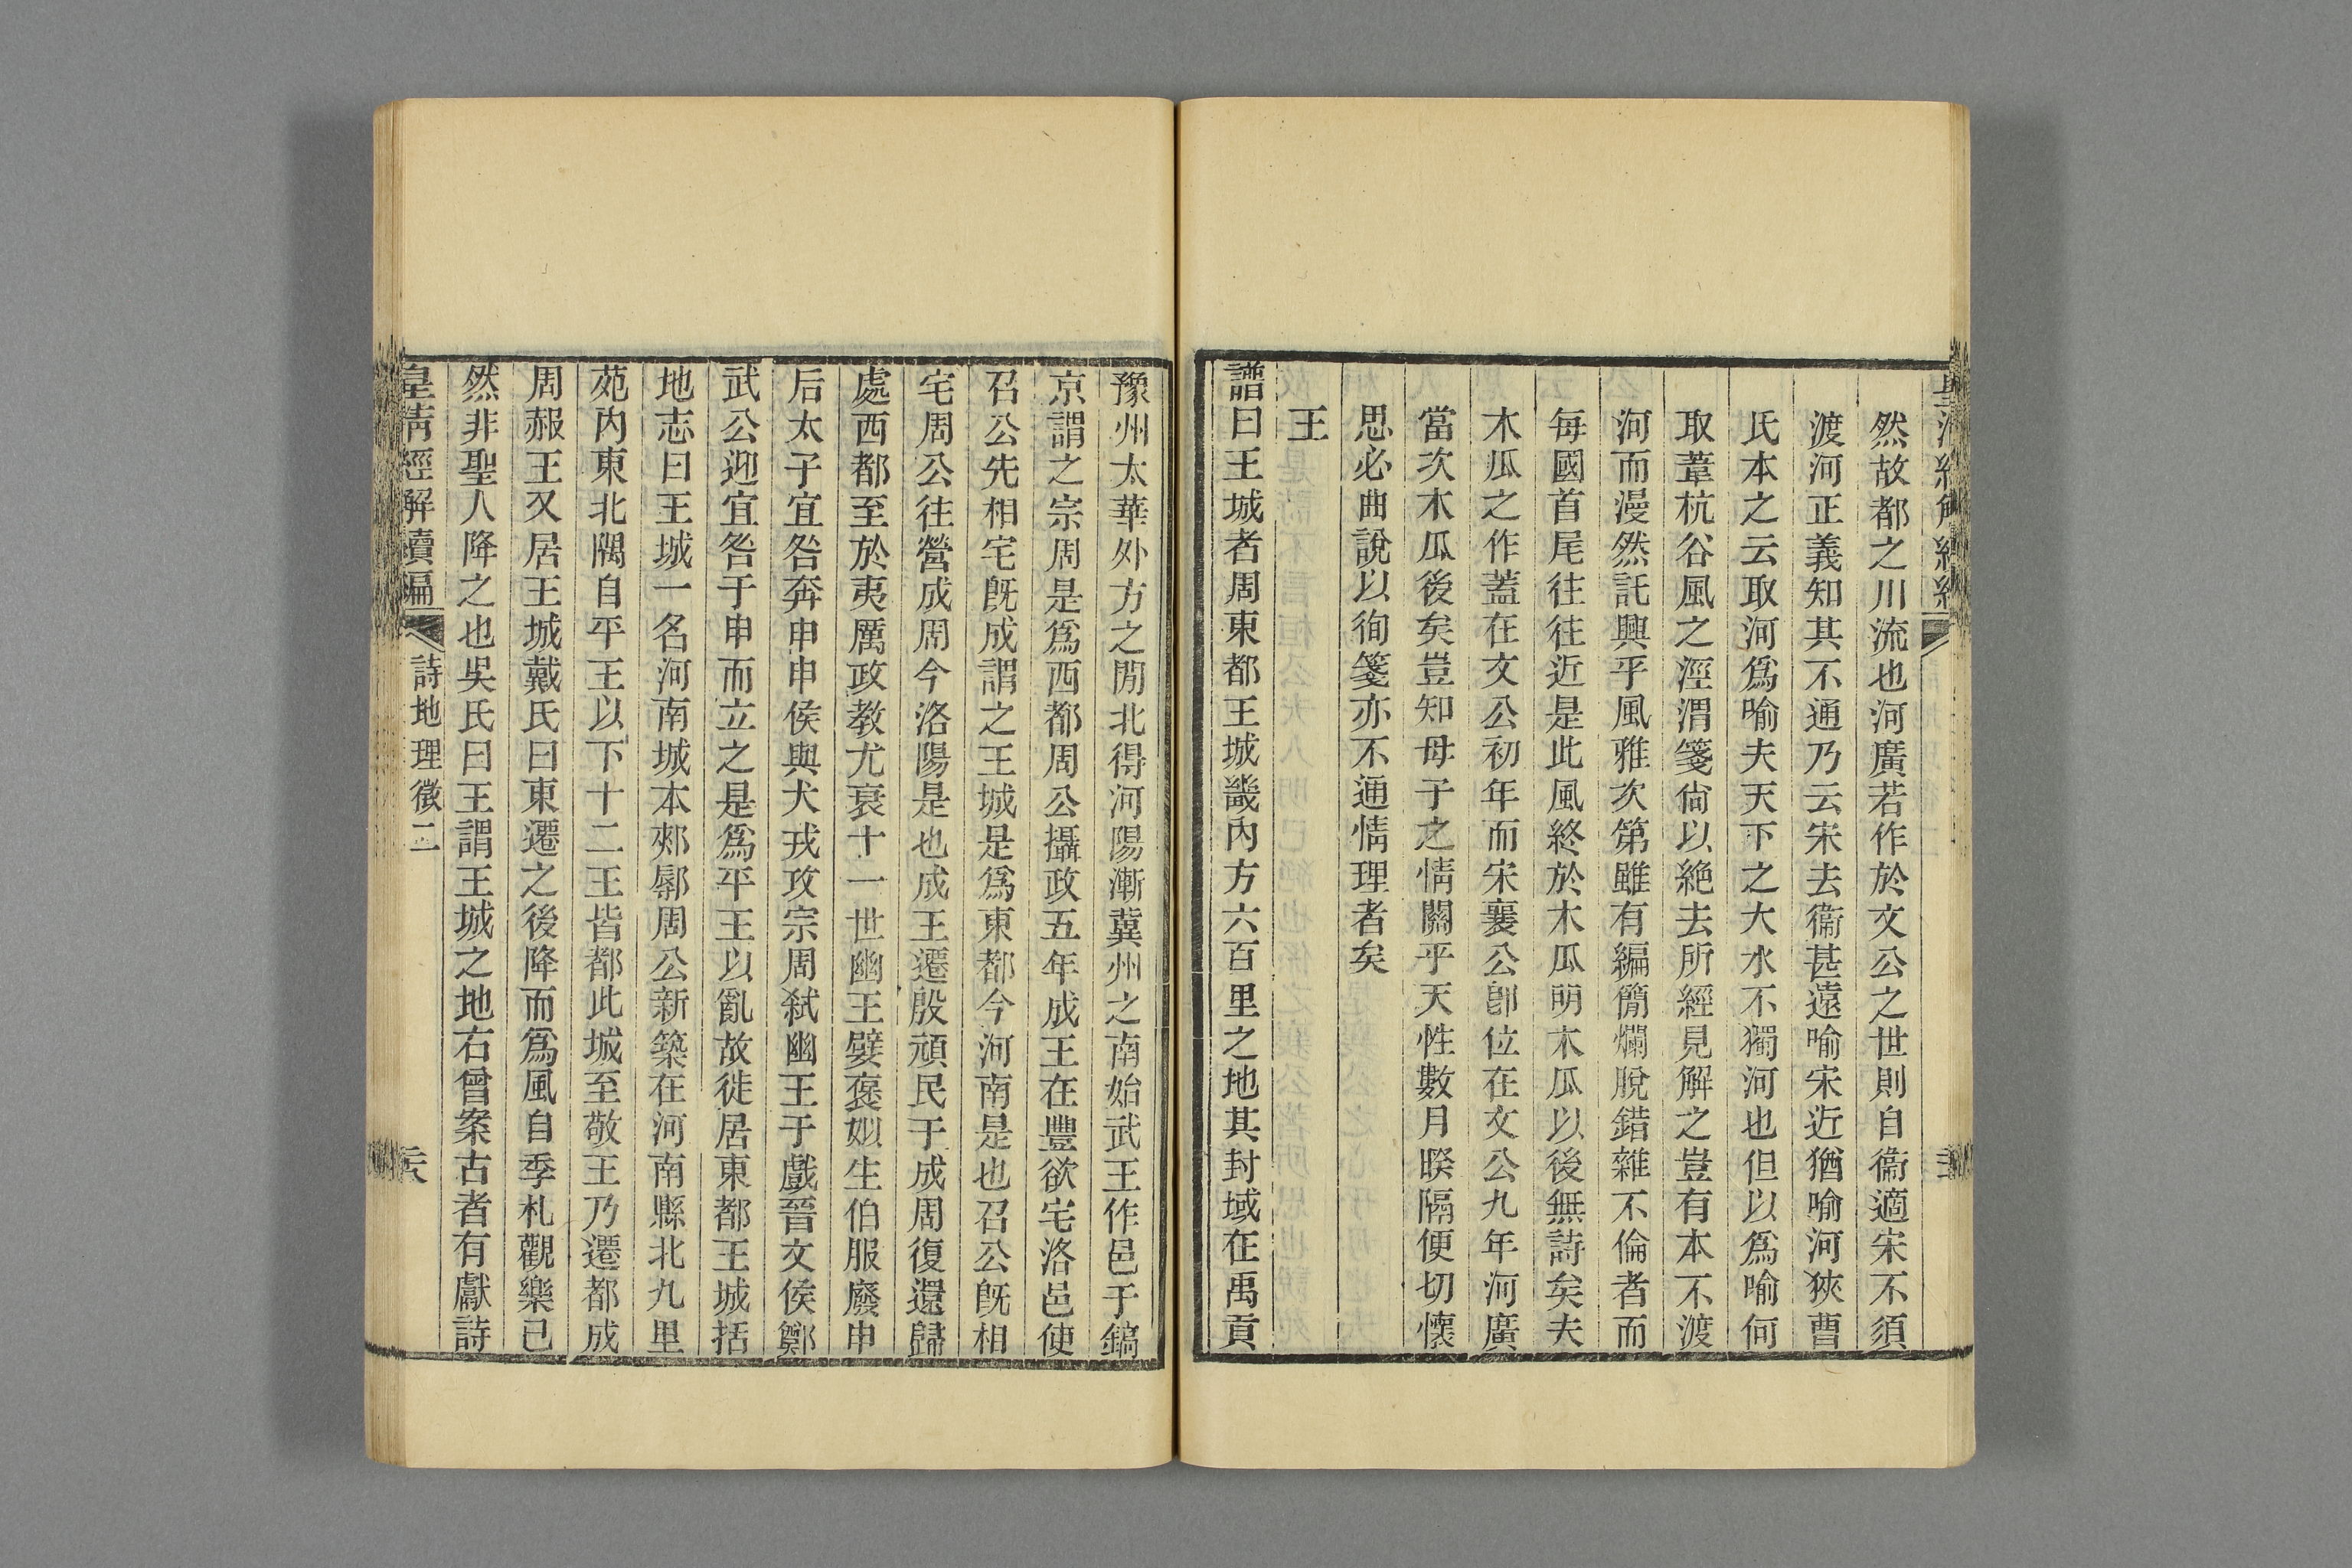 然故都之川流也河廣若作於文公之世則自衞適宋不須
渡河正義知其不通乃云宋去衞甚遠喻宋近猶喻河狹曹
氏本之云取河爲喻夫天下之大水不獨河也但以爲喻何
取葦杭谷風之涇渭箋尙以絶去所經見解之豈有本不渡
河而漫然託興乎風雅次第雖有編簡爛脫錯雜不倫者而
每國首尾往往近是此風終於木瓜明木瓜以後無詩矣夫
木瓜之作蓋在文公初年而宋襄公卽位在文公九年河廣
當次木瓜後矣豈知母子之情關乎天性數月暌隔便切懷
思必曲說以徇箋亦不通情理者矣
王
譜曰王城者周東都王城畿內方六百里之地其封域在禹貢
豫州太華外方之閒北得河陽漸冀州之南始武王作邑于鎬
京謂之宗周是爲西都周公攝政五年成王在豐欲宅洛邑使
召公先相宅旣成謂之王城是爲東都今河南是也召公旣相
宅周公往營成周今洛陽是也成王遷殷頑民于成周復還歸
處西都至於夷厲政教尤衰十一世幽王嬖褒姒生伯服廢申
后太子宜咎奔申申侯與犬戎攻宗周弒幽王于戲晉文侯鄭
武公迎宜咎于申而立之是爲平王以亂故徙居東都王城括
地志曰王城一名河南城本郟鄏周公新築在河南縣北九里
苑內東北隅自平王以下十二王皆都此城至敬王乃遷都成
周赧王又居王城戴氏曰東遷之後降而爲風自季札觀樂已
然非聖人降之也吳氏曰王謂王城之地右曾案古者有獻詩
皇淸經解續編 詩地理徵二